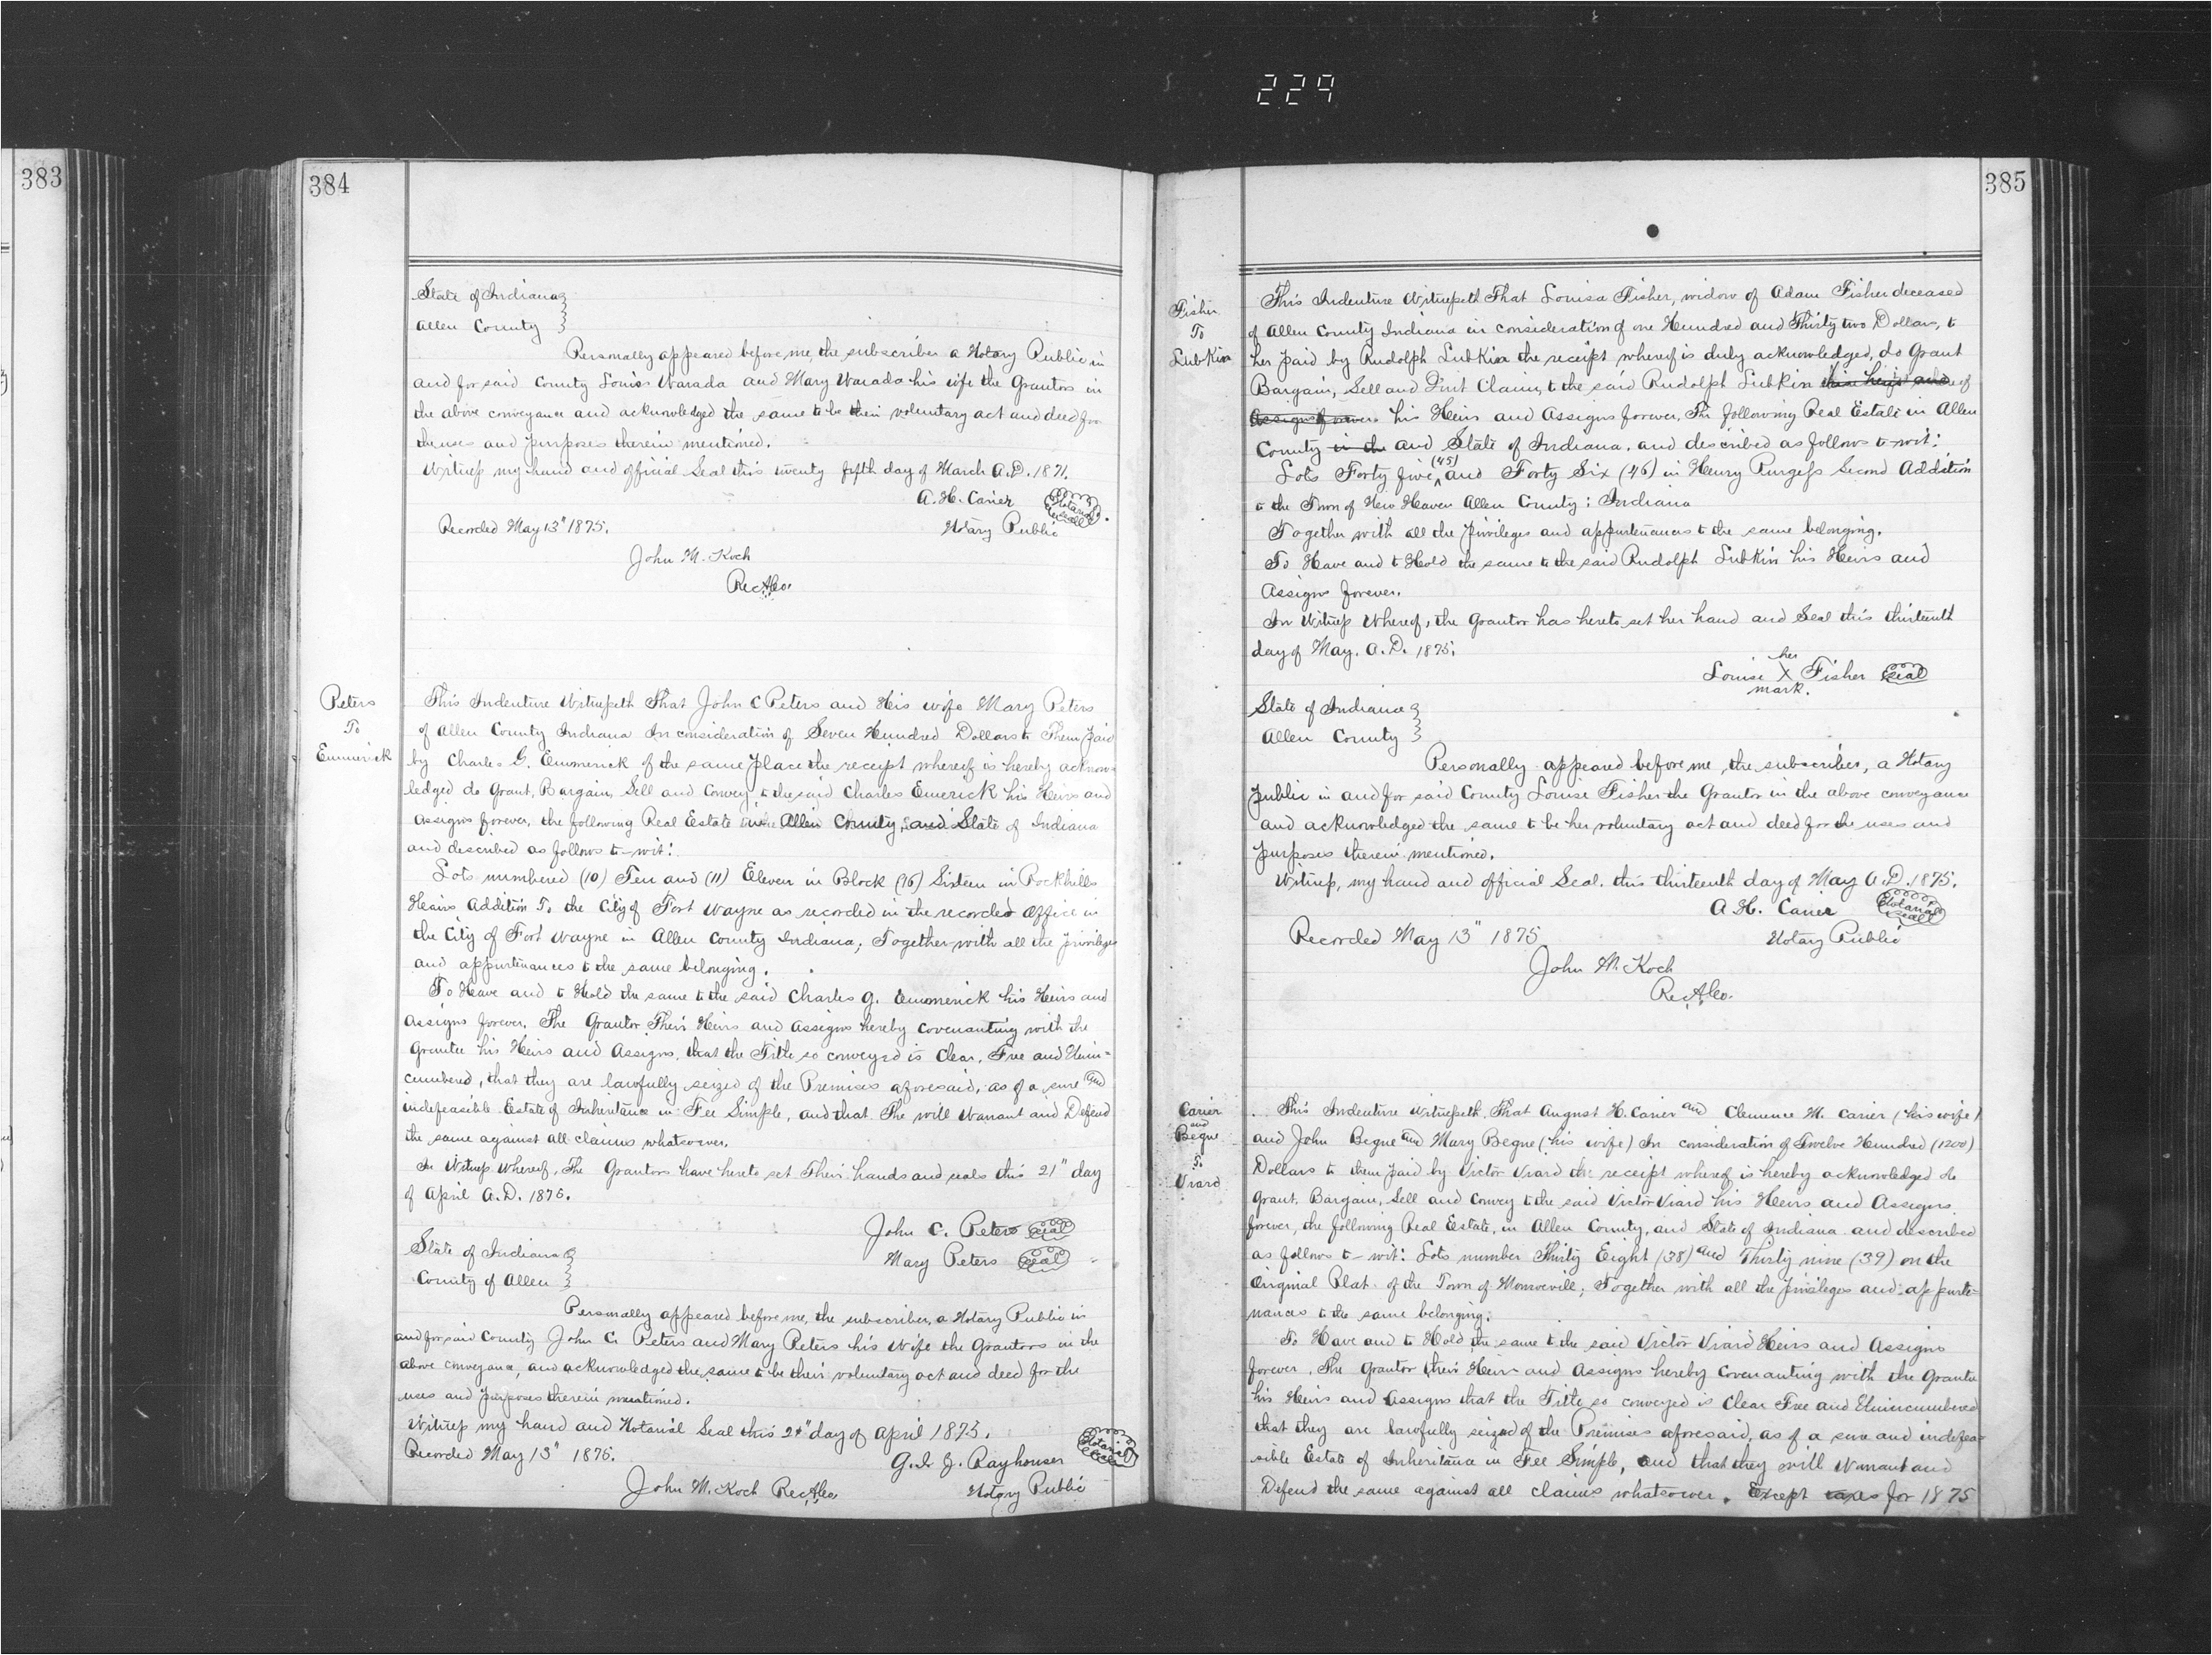 229
383
384
State of Indiana }
Allen County }
Personally appeared before me, the subscriber a Notary Public in
and for said County Louis Warada and Mary Warada his wife the Grantors in
the above conveyance and acknowledged the same to be their voluntary act and deed for
the uses and purposes therein mentioned.
Witness my hand and official Seal this twenty fifth day of March A.D. 1871.
A. H. Carier Notarial Seal
Recorded May 13" 1875. Notary Public
John M. Koch
R.A.Co.
Peters
To
Emmerick
This Indenture Witnesseth That John C Peters and His wife Mary Peters
of Allen County Indiana In consideration of Seven Hundred Dollars to Them paid
by Charles G. Emmerick of the same place the receipt whereof is hereby acknow-
ledged do Grant, Bargain, Sell and Convey, to the said Charles Emerick his Heirs and
Assigns forever, the following Real Estate Allen County, and State of Indiana
and described as follows to-wit:
Lots numbered (10) Ten and (11) Eleven in Block (16) Sixteen in Rockhills
Heairs Addition To the City of Fort Wayne as recorded in the recorded Office in
the City of Fort Wayne in Allen County Indiana; Together with all the privileges
and appurtenances to the same belonging.
To Have and to Hold the same to the said Charles G. Emmerick his Heirs and
Assigns forever. The Grantor Their Heirs and Assigns hereby covenanting with the
Grantee his Heirs and Assigns, that the Title so conveyed is Clear, Free and Unin-
cumbered, that they are lawfully seized of the Premises aforesaid, as of a sure and
indefeasible Estate of Inheritance in Fee Simple, and that The will Warrant and Defend
the same against all claims whatsoever.
In Witness Whereof, The Grantors have hereto set Their hands and seals this 21" day
of April A.D. 1875.
John C. Peters Seal
State of Indiana } Mary Peters Seal
County of Allen }
Personally appeared before me, the subscriber, a Notary Public in
and for said County John C. Peters and Mary Peters his Wife the Grantors in the
above conveyance, and acknowledged the same to be their voluntary act and deed for the
uses and purposes therein mentioned.
Witness my hand and Notarial Seal this 21" day of April 1875.
Recorded May 13" 1875. G. J. Rayhouser Notarial Seal
John M. Koch R.A.Co. Notary Public
385
Fisher
To
Lubkin
This Indenture Witnesseth That Louisa Fisher, widow of Adam Fisher deceased
of Allen County Indiana in consideration of one Hundred and Thirty two Dollars, to
her paid by Rudolph Lubkin the receipt whereof is duly acknowledged, do Grant
Bargain, Sell and Quit Claim, to the said Rudolph Lubkin his heirs and of
Assigns forever his Heirs and Assigns forever, The following Real Estate in Allen
County in the and State of Indiana, and described as follows to-wit:
Lots Forty five (45) and Forty Six (46) in Henry Burgess Second Addition
to the Town of New Heaven Allen County; Indiana
Together with all the privileges and appurtenances to the same belonging.
To Have and to Hold the same to the said Rudolph Lubkin his Heirs and
Assigns forever.
In Witness Whereof, the Grantor has hereto set her hand and Seal this thirteenth
day of May. A.D. 1875.
her
Louise X Fisher Seal
mark.
State of Indiana }
Allen County }
Personally appeared before me, the subscriber, a Notary
public in and for said County Louise Fisher the Grantor in the above conveyance
and acknowledged the same to be her voluntary act and deed for the uses and
purposes therein mentioned.
Witness, my hand and official Seal, this thirteenth day of May A.D. 1875.
A H. Carier Notarial Seal
Recorded May 13" 1875 Notary Public
John M. Koch
R.A.Co.
Carier
and
Begue
To
Viard
This Indenture Witnesseth, That August H. Carier and Clemence M. Carier (his wife)
and John Begue and Mary Begue (his wife) In consideration of Twelve Hundred (1200)
Dollars to them paid by Victor Viard the receipt whereof is hereby acknowledged do
Grant, Bargain, Sell and Convey to the said Victor Viard his Heirs and Assigns
forever, the following Real Estate, in Allen County, and State of Indiana and described
as follows to-wit: Lots number Thirty Eight (38) and Thirty nine (39) on the
Original Plat of the Town of Monroeville; Together with all the privileges and appurte-
nances to the same belonging.
To Have and to Hold the same to the said Victor Viard Heirs and Assigns
forever. The Grantor their Heirs and Assigns hereby Covenanting with the Grantee
his Heirs and Assigns that the Title so conveyed is Clear Free and Unincumbered
that they are lawfully seized of the Premises aforesaid, as of a sure and indefea-
sible Estate of Inheritance in Fee Simple, and that they will Warrant and
Defend the same against all claims whatsoever. Except taxes for 1875